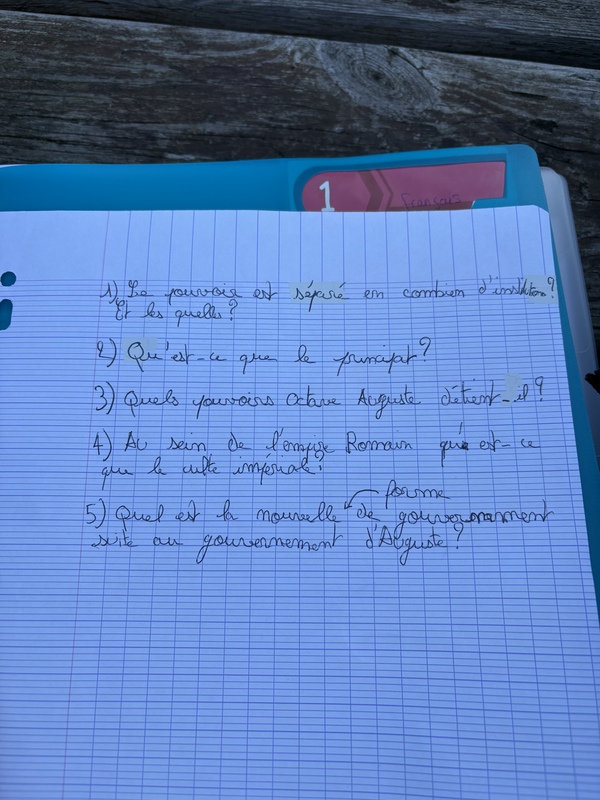 1
Français
1) Le pouvoir est séparé en combien d'institutions?
Et les quelles?
2) Qu'est-ce que le principat?
3) Quels pouvoirs Octave Auguste détient-il?
4) Au sein de l'empire Romain qu'est-ce
que le culte impériale?
forme
5) Quel est la nouvelle de gouvernement
suite au gouvernement d'Auguste?